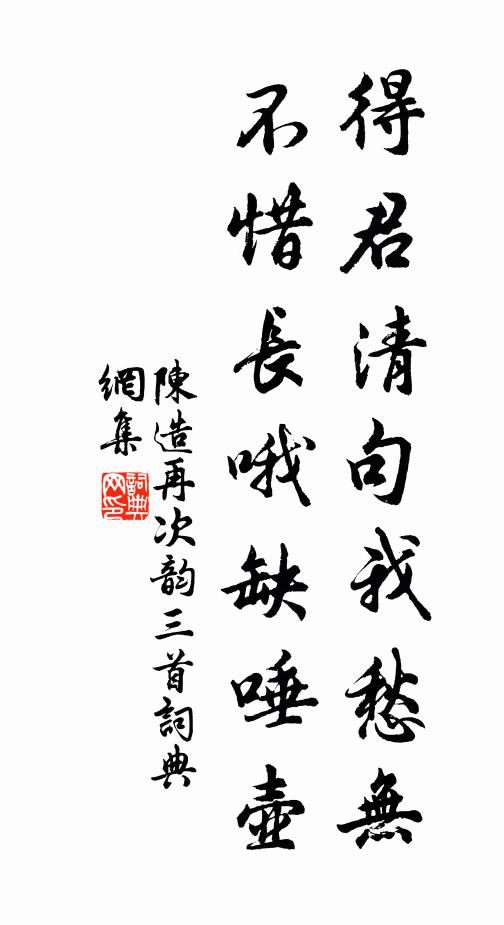 得君清句我愁無
不惜長哦缺唾壺
陳造再次韵三首詞典
網集
詞典
网印